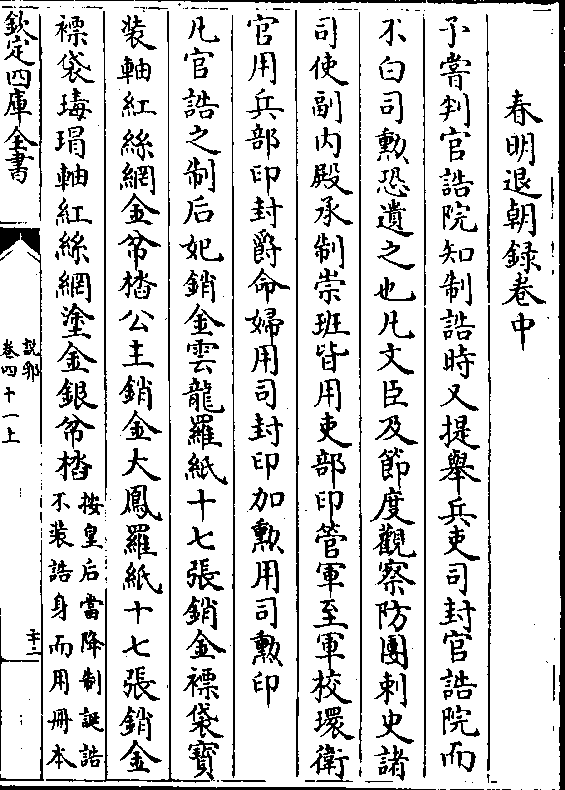 春明退朝録卷中
予嘗判官誥院知制誥時又提舉兵吏司封官誥院而
不白司勲恐遺之也凡文臣及節度觀察防團刺史諸
司使副内殿承制崇班皆用吏部印管軍至軍校環衛
官用兵部印封爵命婦用司封印加勲用司勲印
凡官誥之制后妃銷金雲龍羅紙十七張銷金褾袋寶
装軸紅絲網金帉㭼公主銷金大鳳羅紙十七張銷金
褾袋瑇瑁軸紅絲網塗金銀帉㭼按皇后當降制誕誥
不装誥身而用冊本
欽定四庫全書
説郛
卷四十一上